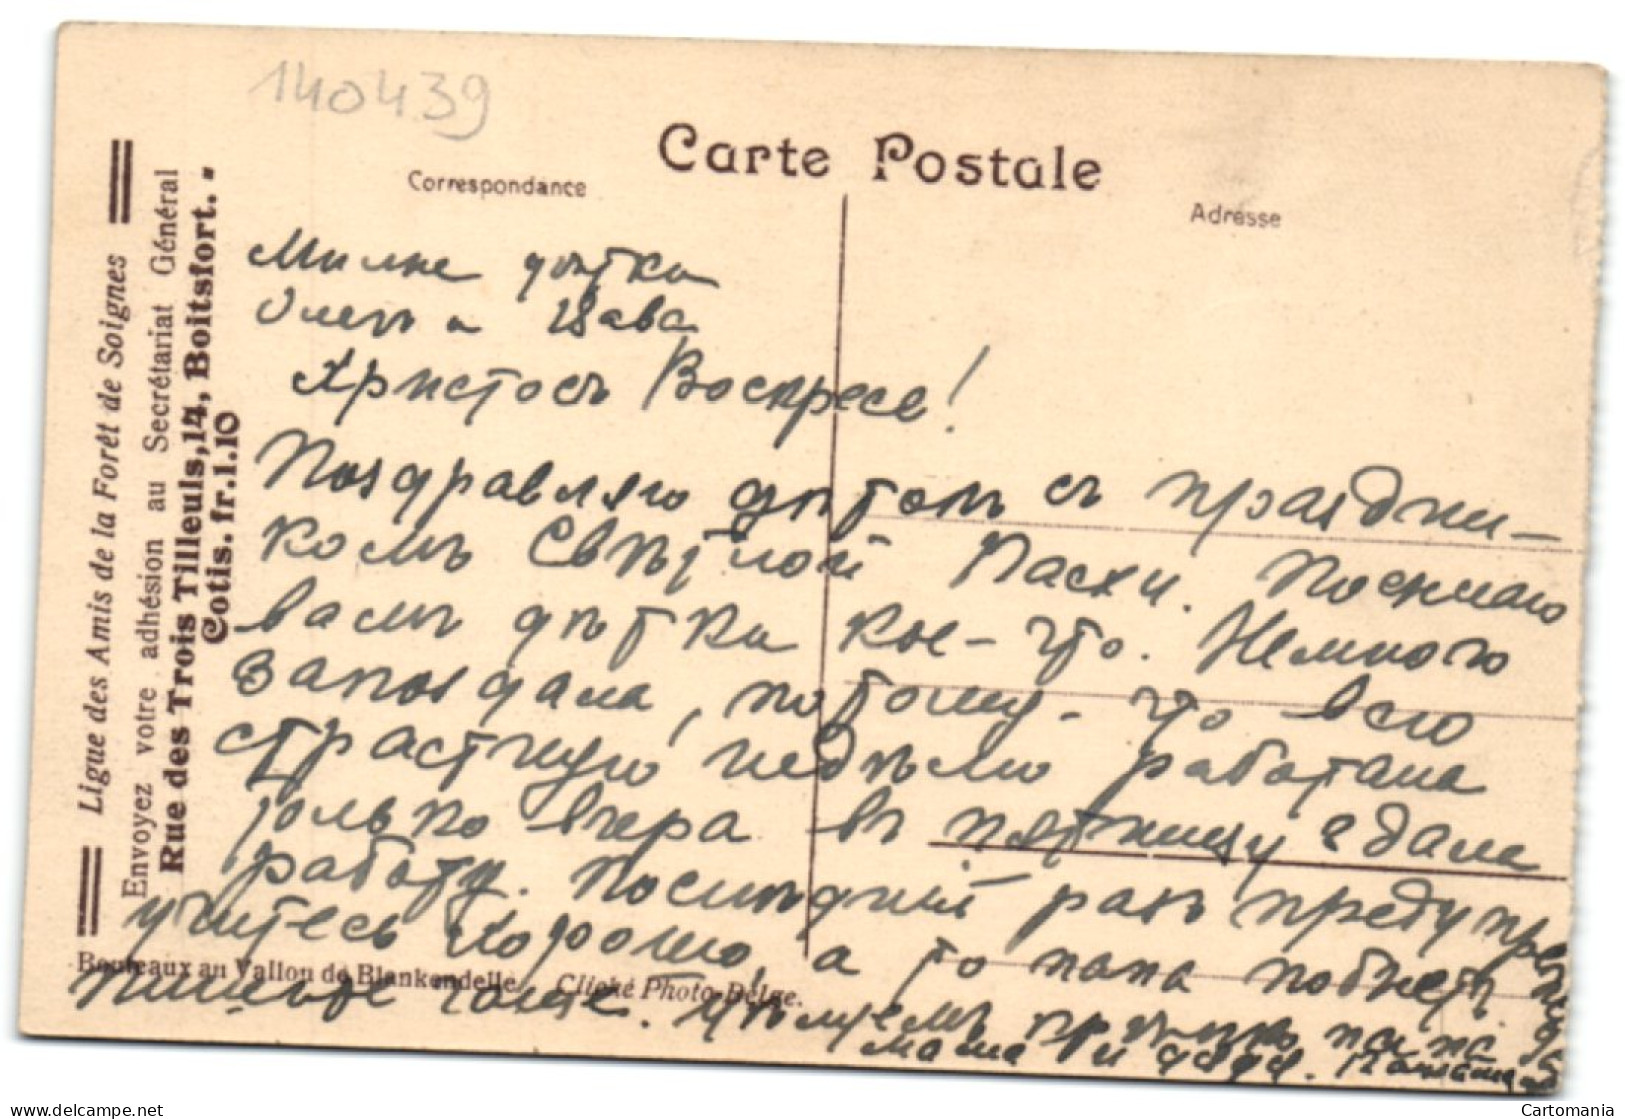 140439
Carte Postale
Correspondance
Adresse
Ligue des Amis de la Forêt de Soignes
Envoyez votre adhésion au Secrétariat Général
Rue des Trois Tilleuls, 14, Boitsfort. -
Cotis. fr. 1.10
Милые дѣтки
Олегъ и
Христосъ Воскресе!
Поздравляю дѣтокъ съ праздни-
комъ Свѣтлой Пасхи. Посылаю
вамъ дѣтки кое-что. Немного
запоздала, потому-что всю
страстную недѣлю работала
только вчера въ пятницу сдала
работу. Послѣдній разъ
учитесь хорошо, а то папа
пишите чаще. Цѣлуемъ крѣпко
мама
Bouleaux au Vallon de Blankendelle. Cliché Photo-Belge.
Cartomania